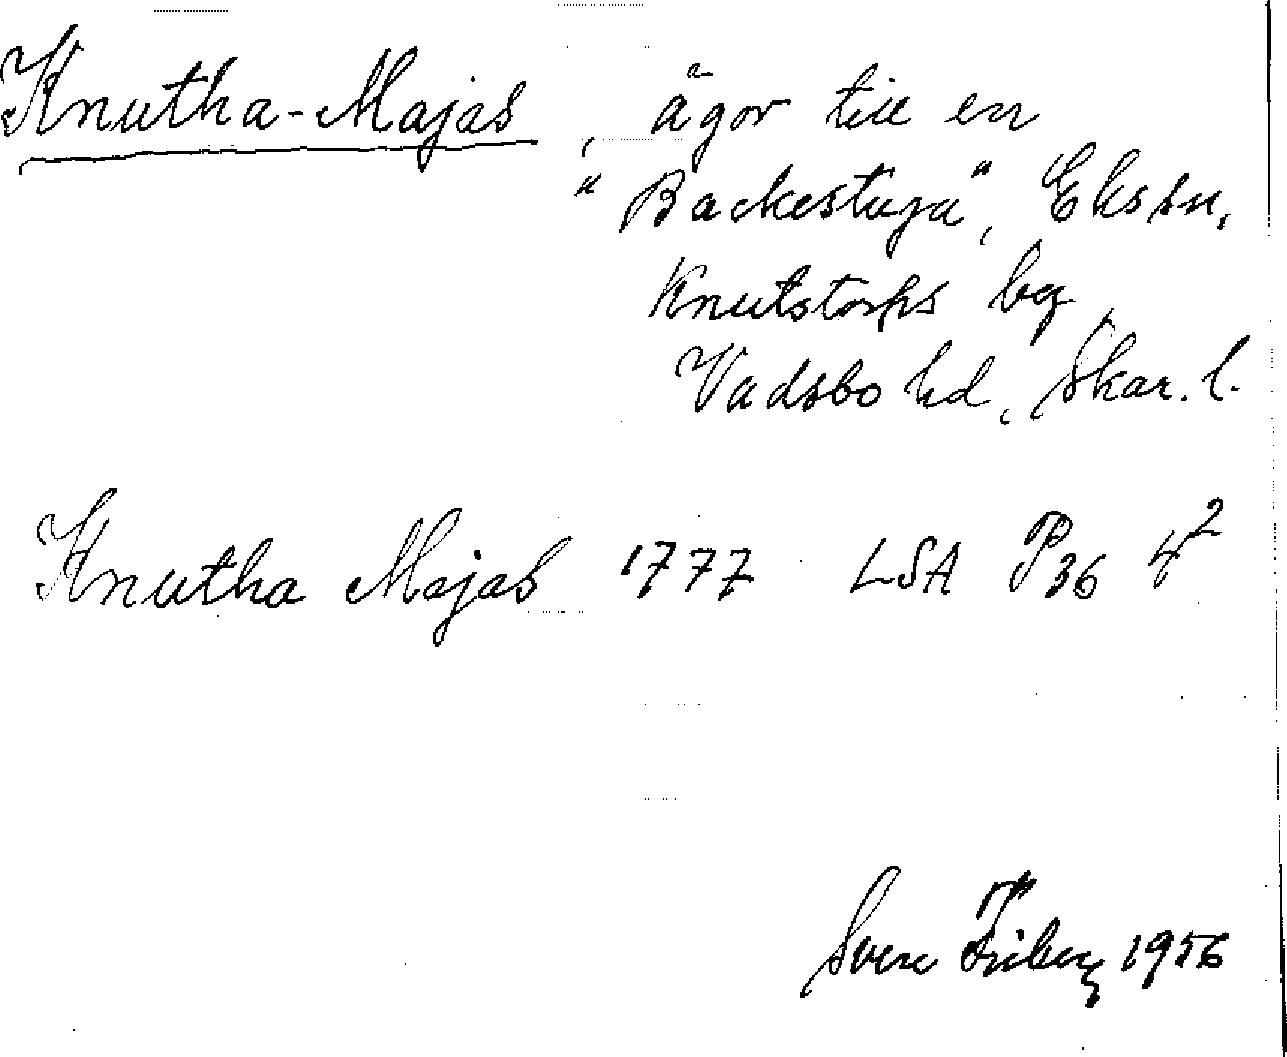 Knutha-Majas, ägor till en
"Backestuga", Eks sn,
Knutstorps by,
Vadsbo hd, Skar. l.
Knutha Majas 1777 LSA P36 4²
Sven Friberg 1956